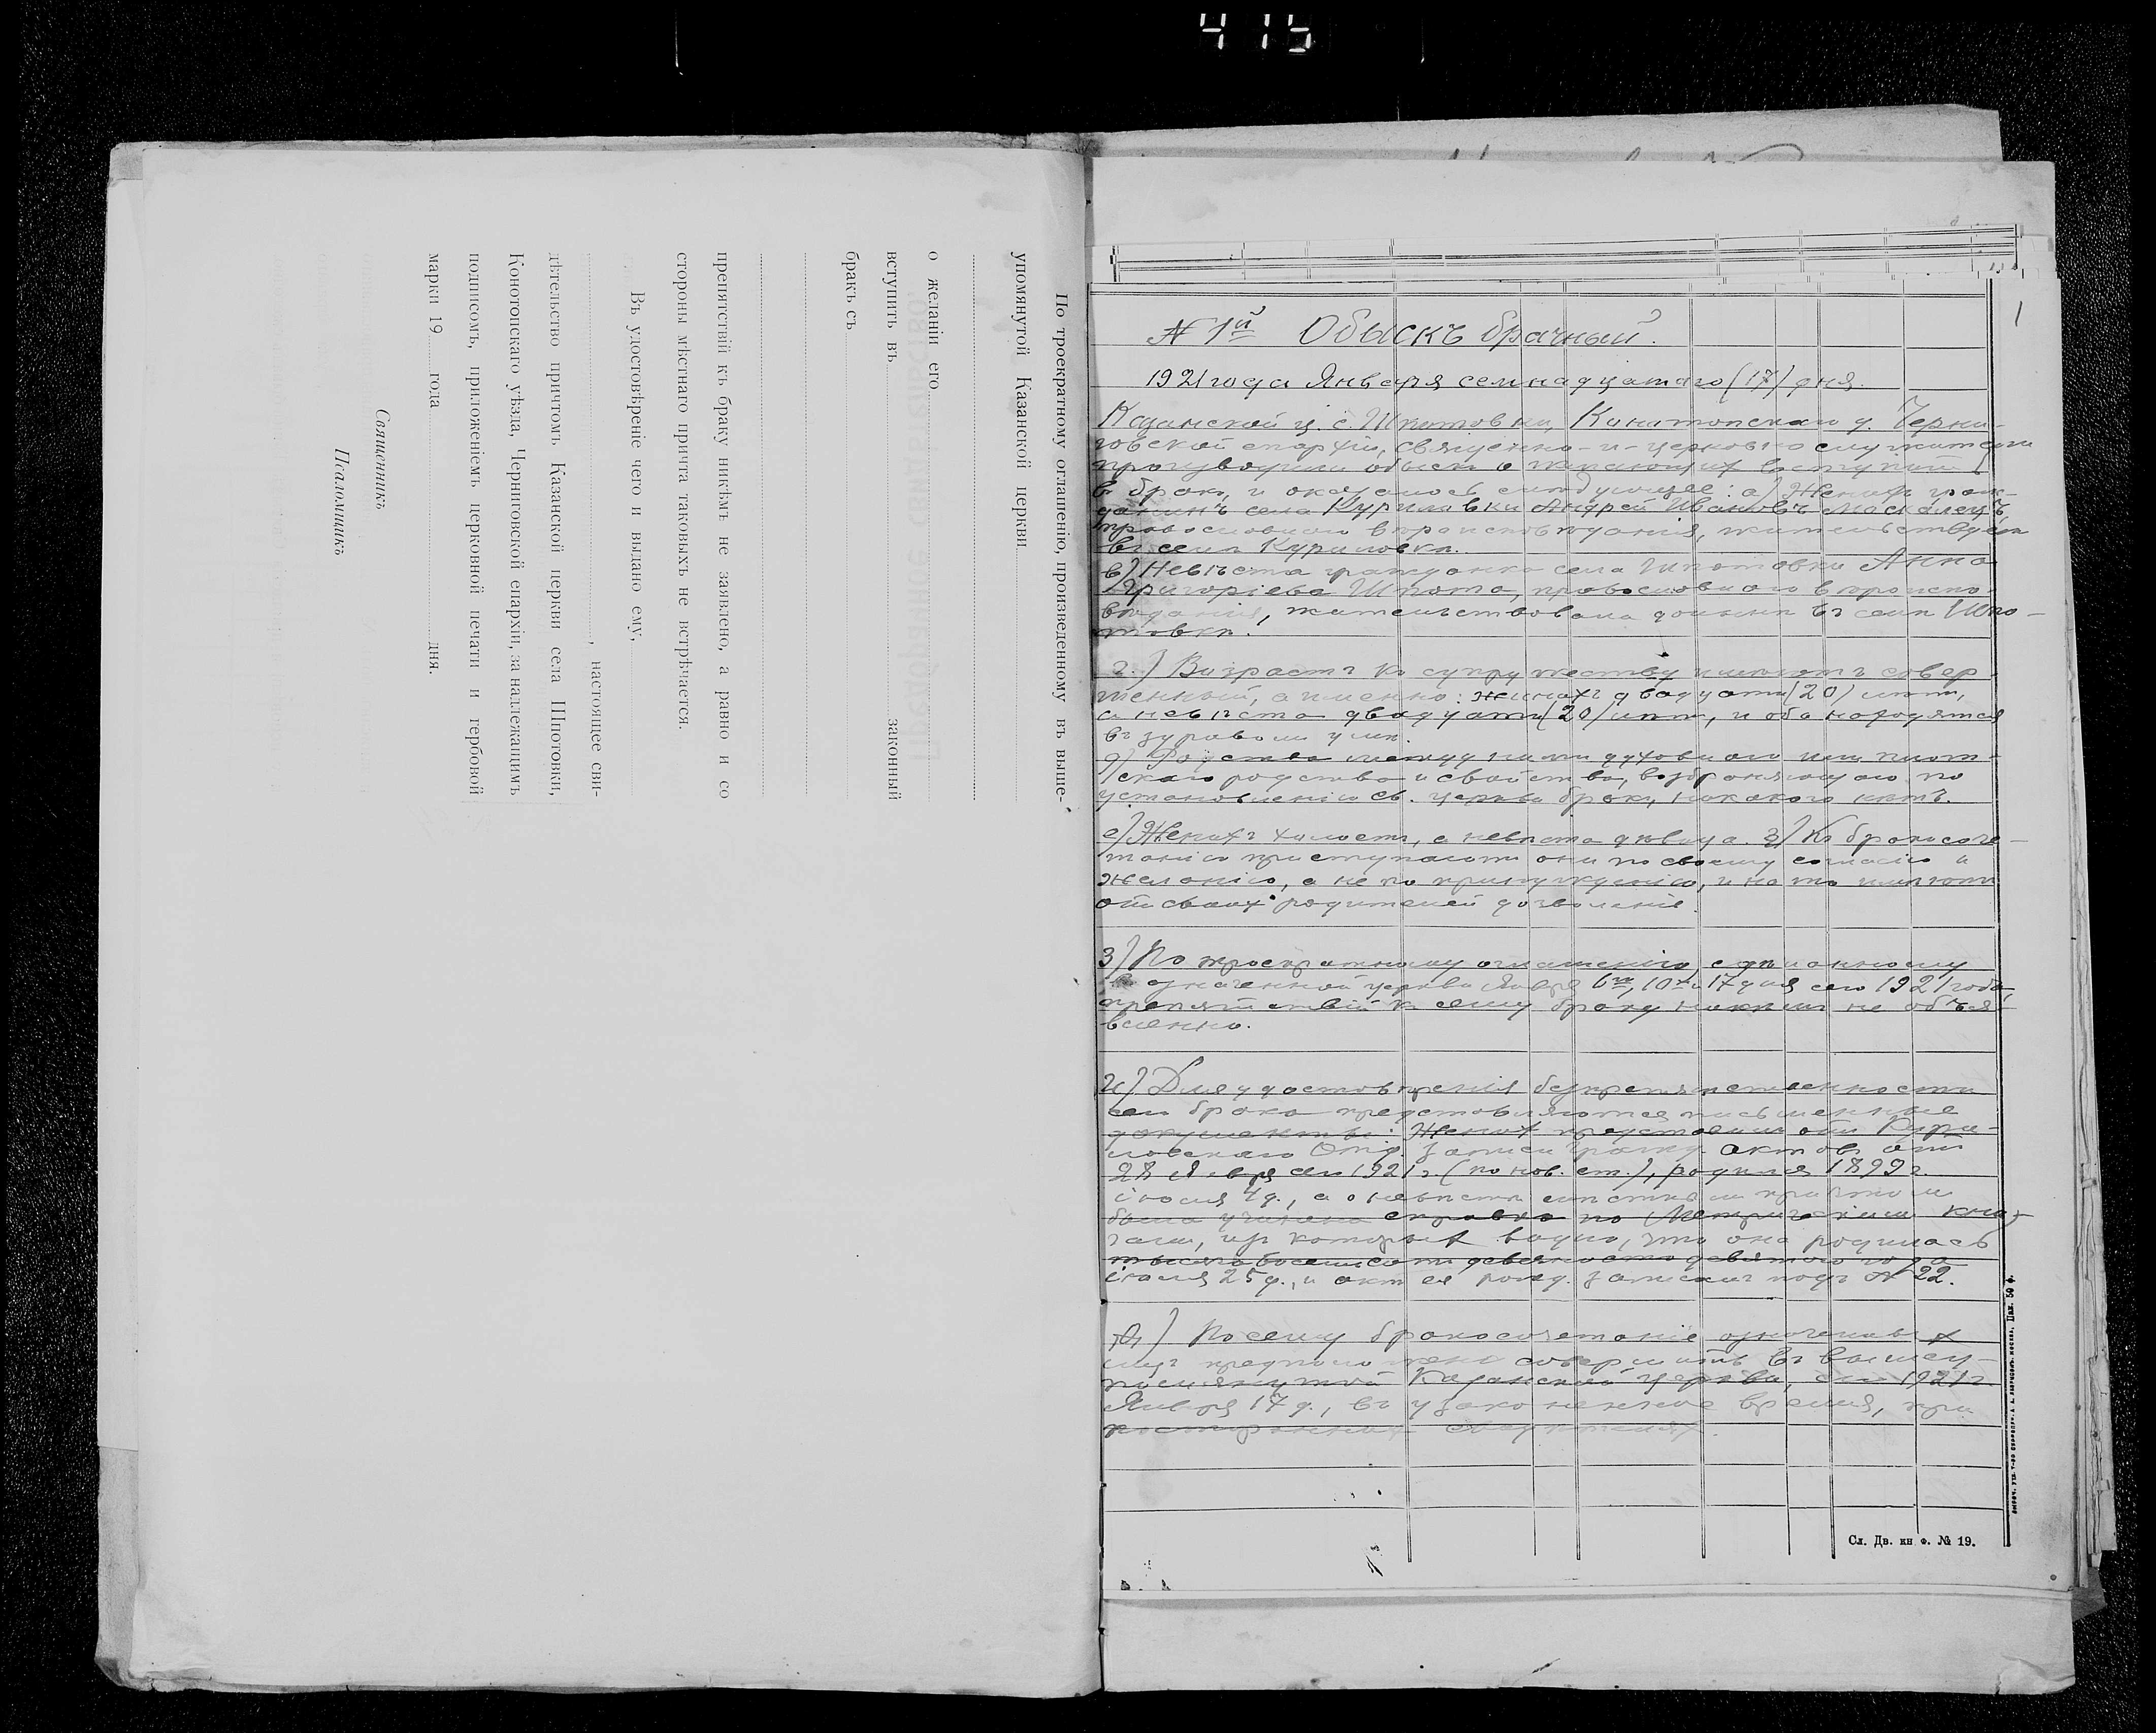 По троекратному оглашенію, произведенному въ выше-
упомянутой Казанской церкви
о желаніи его
вступить въ законный
бракъ съ
препятствій къ браку никѣмъ не заявлено, а равно и со
стороны мѣстнаго причта таковыхъ не встрѣчается.
Въ удостовѣреніе чего и выдано ему,
, настоящее сви-
дѣтельство причтомъ Казанской церкви села Шпотовки,
Конотопскаго уѣзда, Черниговской епархіи, за надлежащимъ
подписомъ, приложеніемъ церковной печати и гербовой
марки 19 года дня.
Священникъ
Псаломщикъ
1
№ 1й Обыскъ брачный.
1921 года Января семнадцатаго (17) дня.
Казанской ц. с. Шпотовки, Конотопскаго у. Черни-
говской епархіи, священно-и-церковно служители
производили обыскъ о желающихъ вступить
въ бракъ, и оказалось слѣдующее: а) Женихъ граж-
данинъ села Куриловки Андрей Ивановъ Москалецъ,
православнаго вѣроисповѣданія, жительствуетъ
въ селѣ Куриловкѣ.
в) Невѣста гражданка села Шпотовки Анна
Григоріева Шпота, православнаго вѣроиспо-
вѣданія, жительствовала донынѣ въ селѣ Шпо-
товкѣ.
г.) Возрастъ къ супружеству имѣютъ совер-
шенный, а именно: женихъ двадцати (20) лѣтъ,
а невѣста двадцати (20) лѣтъ, и оба находятся
въ здравомъ умѣ.
д) Родства между ними духовнаго или плот-
скаго родства и свойства, возбраняющаго по
установленію св. церкви бракъ, никакого нѣтъ.
е) Женихъ холостъ, а невѣста дѣвица. ж) Къ бракосоче-
танію приступаютъ они по своему согласію и
желанію, а не по принужденію, и на то имѣютъ
отъ своихъ родителей дозволеніе.
з) По троекратному оглашенію, сдѣланному
въ означенной церкви Января 6го, 10го и 17 дня сего 1921 года,
препятствій къ сему браку никѣмъ не объяв-
вленно.
и) Для удостовѣренія безпрепятственности
сего брака представляются письменные
документы: Женихъ представилъ отъ Кури-
ловскаго Отд. Записи гражд. актовъ отъ
28 Января сего 1921 г. (по нов. ст.), родился 1899 г.
Іюля 4 д., а о невѣстѣ мѣстнымъ причтомъ
была учинена справка по Метрическимъ кни-
гамъ, изъ которыхъ видно, что она родилась
тысяча восемьсотъ девяносто девятого года
Іюля 25 д., и актъ ея рожд. записанъ подъ № 22.
Посему бракосочетаніе означенныхъ
лицъ предположено совершить въ вышеу-
помянутой Казанской церкви, сего 1921 г.
Января 17 д., въ узаконенное время, при
постороннихъ свидѣтеляхъ.
Сл. Дв. кн ф. № 19.